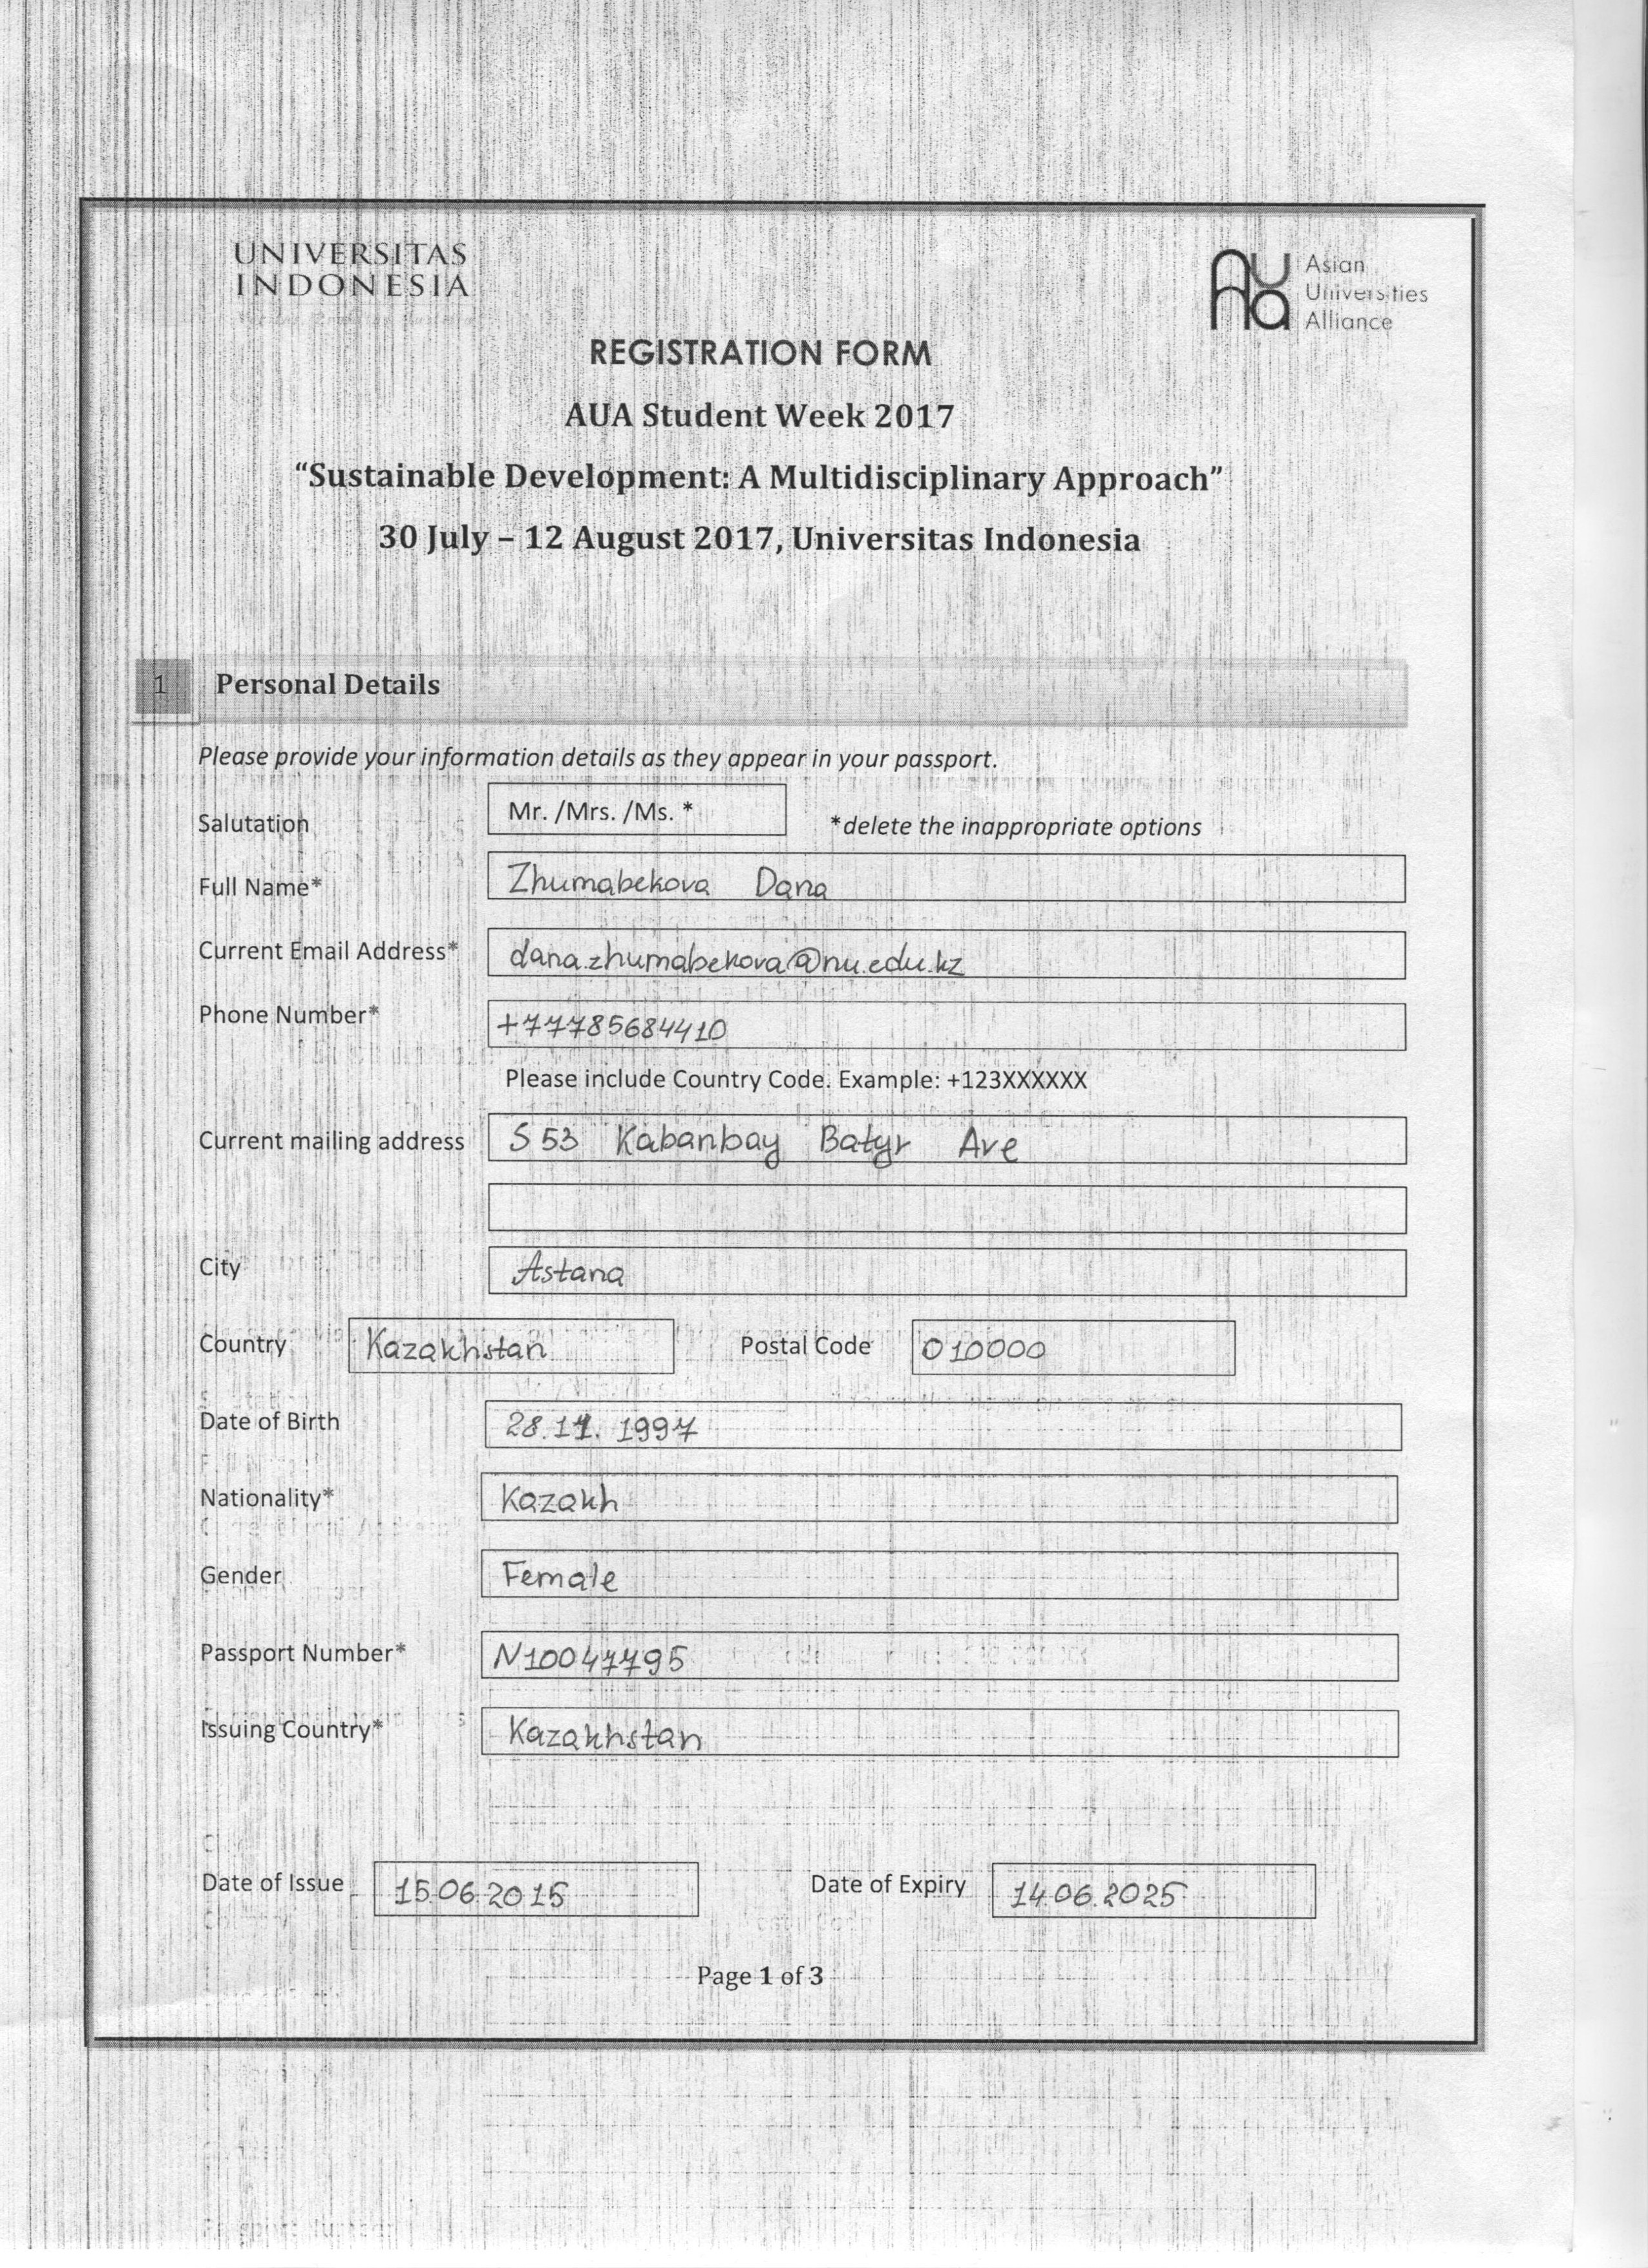 UNIVERSITAS
INDONESIA
Asian
Universities
Alliance
REGISTRATION FORM
AUA Student Week 2017
“Sustainable Development: A Multidisciplinary Approach”
30 July – 12 August 2017, Universitas Indonesia
1 Personal Details
Please provide your information details as they appear in your passport.
Salutation Mr. /Mrs. /Ms. * *delete the inappropriate options
Full Name* Zhumabekova Dana
Current Email Address* dana.zhumabekova@nu.edu.kz
Phone Number* +77785684410
Please include Country Code. Example: +123XXXXXX
Current mailing address S 53 Kabanbay Batyr Ave
City Astana
Country Kazakhstan Postal Code 010000
Date of Birth 28.11.1997
Nationality* Kazakh
Gender Female
Passport Number* N10047795
Issuing Country* Kazakhstan
Date of Issue 15.06.2015 Date of Expiry 14.06.2025
Page 1 of 3